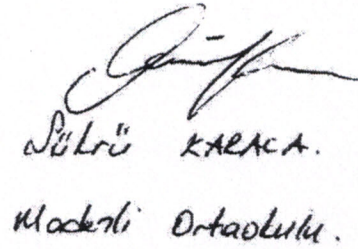 Şükrü KARACA.
Madenli Ortaokulu.